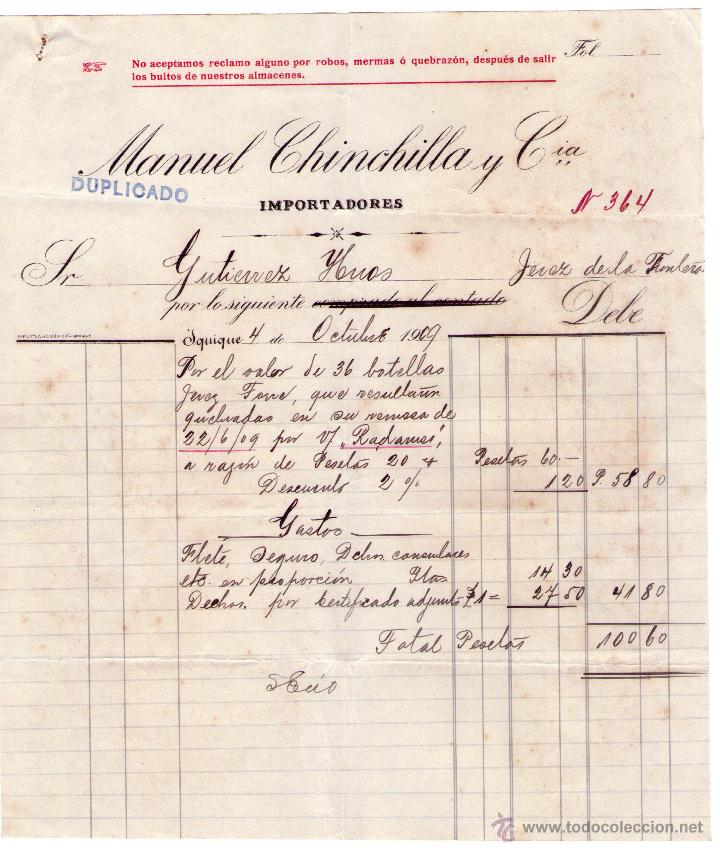 No aceptamos reclamo alguno por robos, mermas ó quebrazón, después de salir
los bultos de nuestros almacenes.
Fol
Manuel Chinchilla y Cia
DUPLICADO
IMPORTADORES
Nº 364
Sr Gutierrez Hnos Jerez de la Frontera
por lo siguiente comprado al contado Debe
Iquique 4 de Octubre 1909
Por el valor de 36 botellas
Jerez que resultaron
quebradas en su remesa de
22/6/09 por V/ „Radames",
a razón de Pesetas 20 Pesetas 60.—
Descuento 2 % 1 20 P. 58 80
Gastos
Flete, Seguro, Dchos consulares
etc. en proporción Ptas 14 30
Dechos. por certificado adjunto £1= 27 50 41 80
Total Pesetas 100 60
www.todocoleccion.net